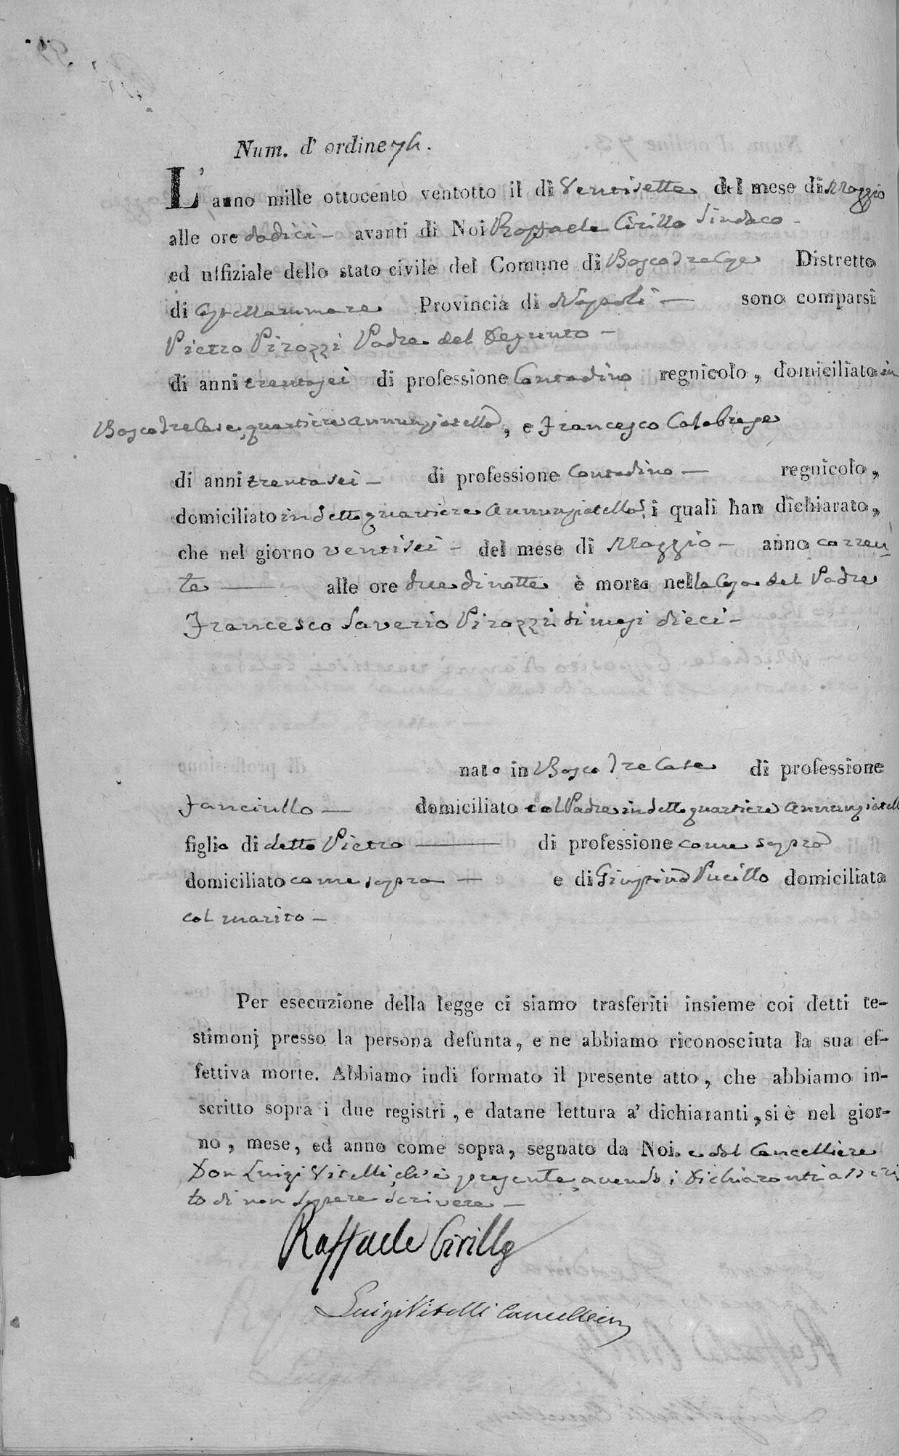 Num. d' ordine 74.
L' anno mille ottocento ventotto il dì Ventisette del mese di Maggio
alle ore dodici – avanti di Noi Raffaele Cirillo Sindaco –
ed uffiziale dello stato civile del Comune di Boscotrecase Distretto
di Castellammare Provincia di Napoli – sono comparsi
Pietro Pirozzi Padre del Defunto –
di anni trentasei di professione Contadino regnicolo, domiciliato in
Boscotrecase, quartiere Annunziatella, e Francesco Calabrese
di anni trentasei – di professione Contadino – regnicolo,
domiciliato in detto quartiere Annunziatella, i quali han dichiarato,
che nel giorno ventisei – del mese di Maggio – anno corren-
te — alle ore due di notte è morto nella Casa del Padre
Francesco Saverio Pirozzi di mesi dieci –
nato in Bosco Tre Case di professione
fanciullo – domiciliato col Padre in detto quartiere Annunziatella
figlio di detto Pietro — di professione come sopra
domiciliato come sopra – e di Giuseppina Pucillo domiciliata
col marito –
Per esecuzione della legge ci siamo trasferiti insieme coi detti te-
stimonj presso la persona defunta, e ne abbiamo riconosciuta la sua ef-
fettiva morte. Abbiamo indi formato il presente atto, che abbiamo in-
scritto sopra i due registri, e datane lettura a' dichiaranti, si è nel gior-
no, mese, ed anno come sopra, segnato da Noi. e dal Cancelliere
Don Luigi Vitelli, ch'è presente, avendo i Dichiaranti asseri
to di non sapere scrivere –
Raffaele Cirillo
Luigi Vitelli Cancelliere